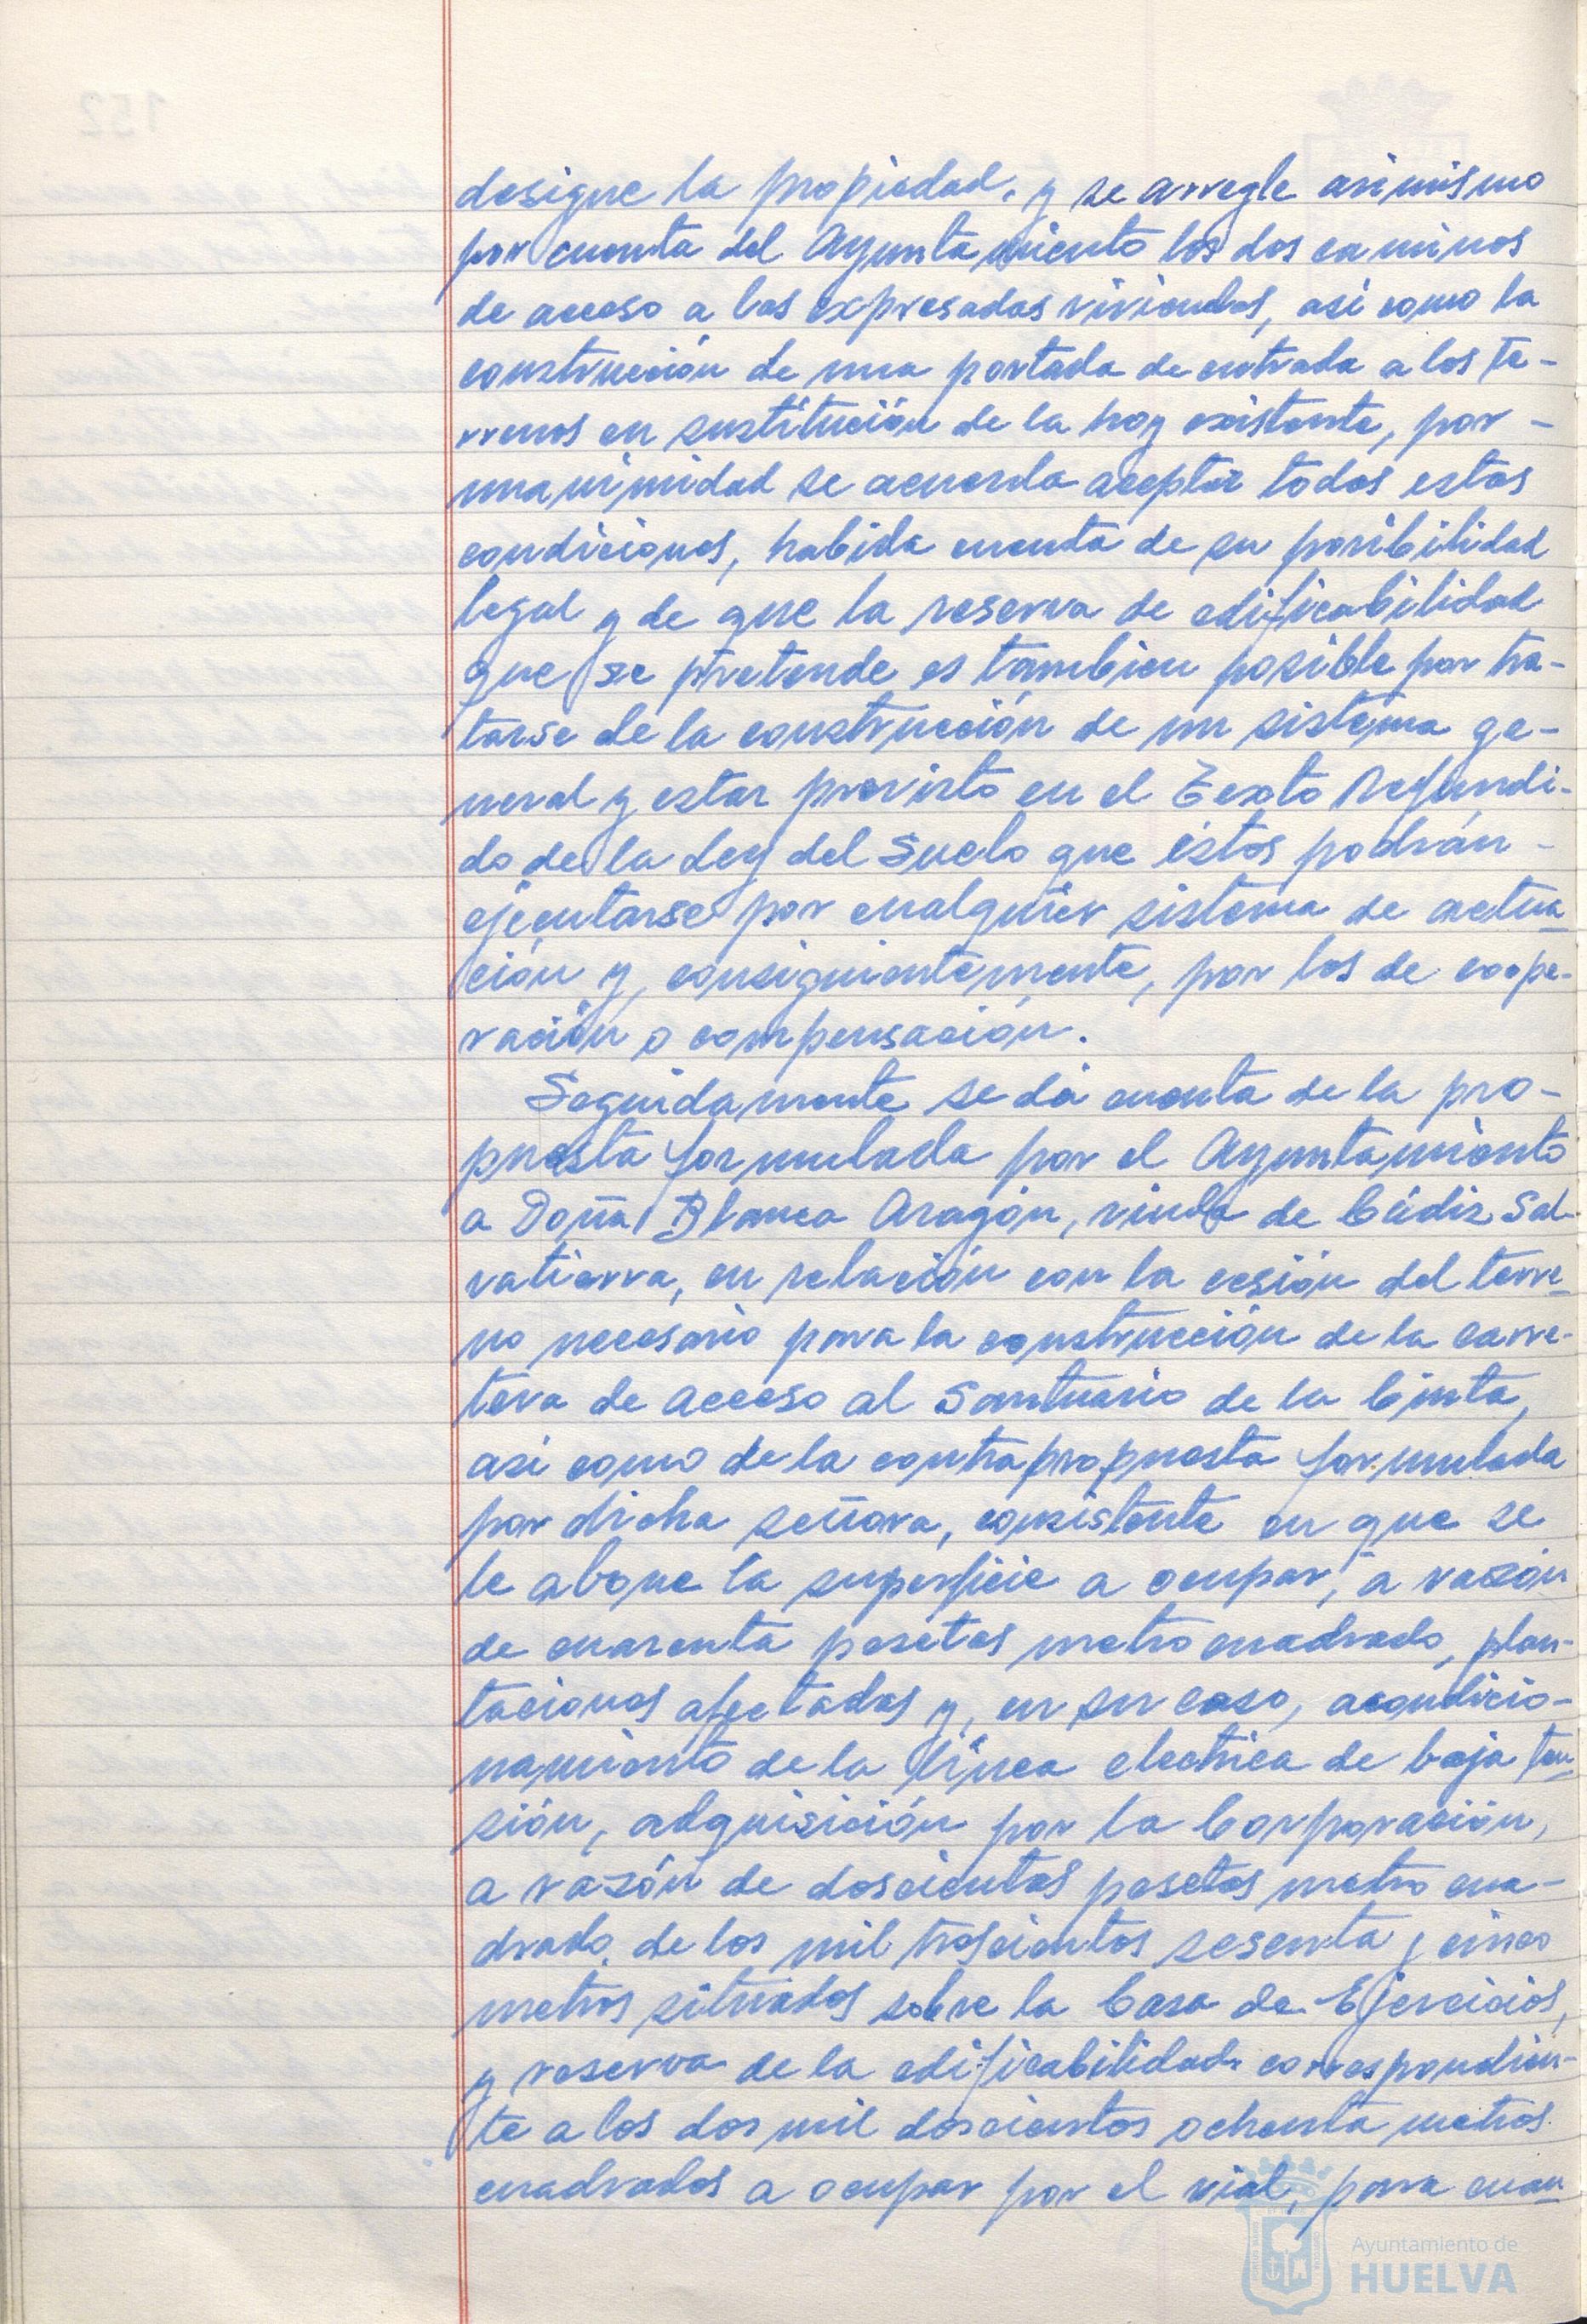 desigue la propiedad, y se arregle asimismo
por cuenta del Ayuntamiento los dos caminos
de acceso a las expresadas viviendas, asi como la
construcción de una portada de entrada a los te-
rrenos en sustitución de la hoy existente, por -
unanimidad se acuerda aceptar todas estas
condiciones, habida cuenta de su posibilidad
legal y de que la reserva de edificabilidad
que se pretende es tambien posible por tra-
tarse de la construcción de un sistema ge-
neral y estar previsto en el Texto Refundi-
do de la Ley del Suelo que éstos podrán -
ejecutarse por cualquier sistema de actua-
ción y, consiguientemente, por los de coope-
ración o compensación.
Seguidamente se dá cuenta de la pro-
puesta formulada por el Ayuntamiento
a Doña Blanca Aragón, viuda de Cádiz Sal-
vatierra, en relación con la cesión del terre-
no necesario para la construcción de la carre-
tera de acceso al Santuario de la Cinta,
asi como de la contrapropuesta formulada
por dicha señora, consistente en que se
le abone la superficie a ocupar, a razón
de cuarenta pesetas metro cuadrado, plan-
taciones afectadas y, en su caso, acondicio-
namiento de la línea electrica de baja ten-
sión, adquisición por la Corporación,
a razón de doscientas pesetas metro cua-
drado, de los mil trescientos sesenta y cinco
metros situados sobre la Casa de Ejercicios,
y reserva de la edificabilidad correspondien-
te a los dos mil doscientos ochenta metros
cuadrados a ocupar por el vial, para cuan-
Ayuntamiento de
HUELVA